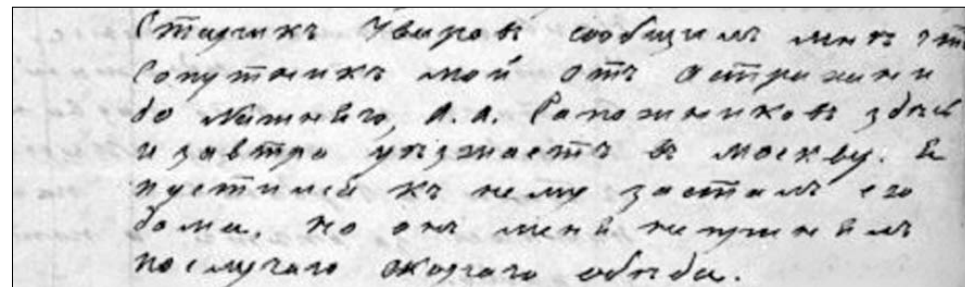 Старикъ Уваровъ сообщилъ мнѣ что
Сопутникъ мой отъ Астрахани
до Нижняго, А. А. Сапожниковъ здѣсь
и завтра уѣзжаетъ в москву. Я
пустился къ нему засталъ его
дома, но онъ меня непринялъ
послучаю скораго обѣда.